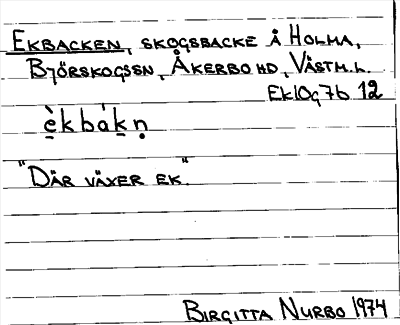 EKBACKEN, SKOGSBACKE Å HOLMA,
BJÖRSKOGSSN, ÅKERBO HD, VÄSTM.L.
EK10g7b 12
è̱kbáḵṇ
"DÄR VÄXER EK."
BIRGITTA NURBO 1974